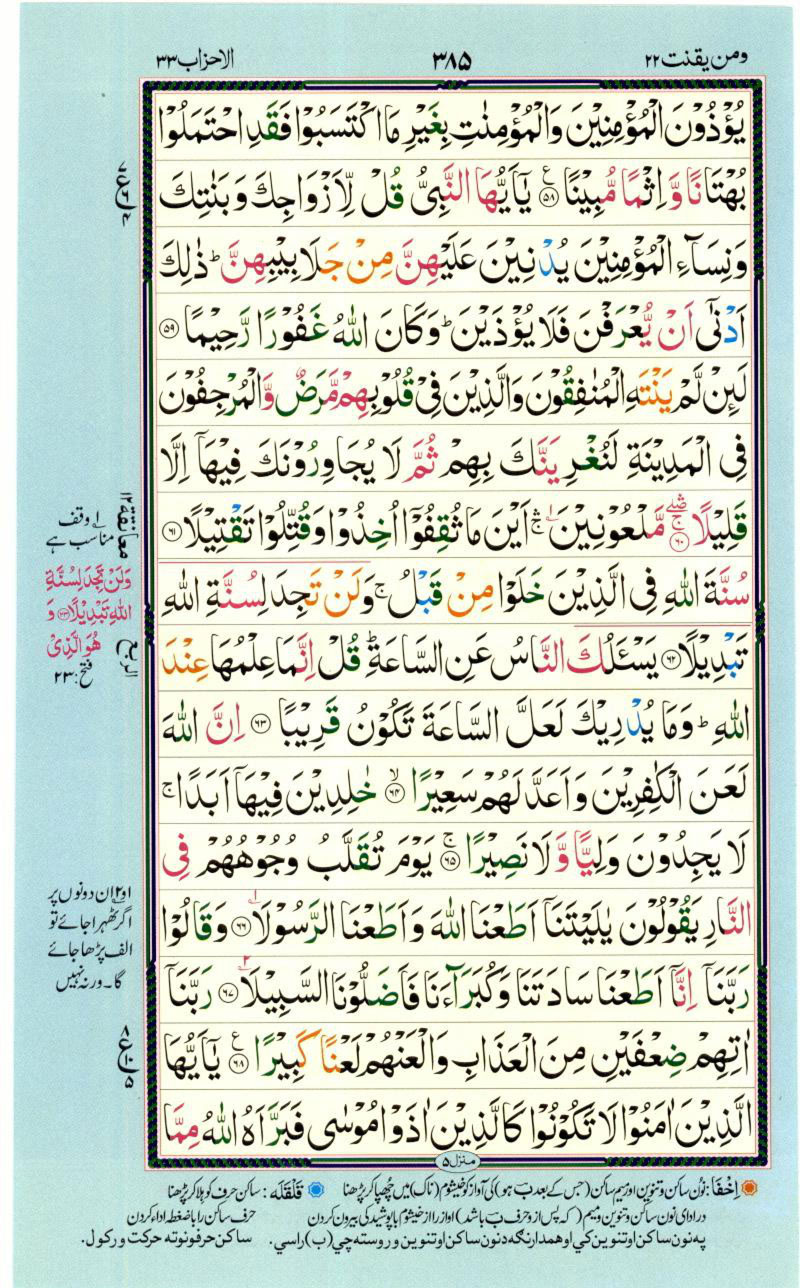 ومن یقنت ۲۲
۳۸۵
الاحزاب ۳۳
يُؤْذُوْنَ الْمُؤْمِنِيْنَ وَالْمُؤْمِنٰتِ بِغَيْرِ مَا اكْتَسَبُوْا فَقَدِ احْتَمَلُوْا
بُهْتَانًا وَّاِثْمًا مُّبِيْنًا ۟ع ﴿۵۸﴾ يٰۤاَيُّهَا النَّبِىُّ قُلْ لِّاَزْوَاجِكَ وَبَنٰتِكَ
وَنِسَآءِ الْمُؤْمِنِيْنَ يُدْنِيْنَ عَلَيْهِنَّ مِنْ جَلَابِيْبِهِنَّ ؕ ذٰلِكَ
اَدْنٰٓى اَنْ يُّعْرَفْنَ فَلَا يُؤْذَيْنَ ؕ وَكَانَ اللّٰهُ غَفُوْرًا رَّحِيْمًا ﴿۵۹﴾
لَئِنْ لَّمْ يَنْتَهِ الْمُنٰفِقُوْنَ وَالَّذِيْنَ فِىْ قُلُوْبِهِمْ مَّرَضٌ وَّالْمُرْجِفُوْنَ
فِى الْمَدِيْنَةِ لَنُغْرِيَنَّكَ بِهِمْ ثُمَّ لَا يُجَاوِرُوْنَكَ فِيْهَاۤ اِلَّا
قَلِيْلًا ﴿۶۰﴾ مَّلْعُوْنِيْنَ ۛۚ اَيْنَ مَا ثُقِفُوْۤا اُخِذُوْا وَقُتِّلُوْا تَقْتِيْلًا ﴿۶۱﴾
سُنَّةَ اللّٰهِ فِى الَّذِيْنَ خَلَوْا مِنْ قَبْلُ ۚ وَلَنْ تَجِدَ لِسُنَّةِ اللّٰهِ
تَبْدِيْلًا ﴿۶۲﴾ يَسْـَٔلُكَ النَّاسُ عَنِ السَّاعَةِ ؕ قُلْ اِنَّمَا عِلْمُهَا عِنْدَ
اللّٰهِ ؕ وَمَا يُدْرِيْكَ لَعَلَّ السَّاعَةَ تَكُوْنُ قَرِيْبًا ﴿۶۳﴾ اِنَّ اللّٰهَ
لَعَنَ الْكٰفِرِيْنَ وَاَعَدَّ لَهُمْ سَعِيْرًا ۙ ﴿۶۴﴾ خٰلِدِيْنَ فِيْهَاۤ اَبَدًا ۚ
لَا يَجِدُوْنَ وَلِيًّا وَّلَا نَصِيْرًا ۚ ﴿۶۵﴾ يَوْمَ تُقَلَّبُ وُجُوْهُهُمْ فِى
النَّارِ يَقُوْلُوْنَ يٰلَيْتَنَاۤ اَطَعْنَا اللّٰهَ وَاَطَعْنَا الرَّسُوْلَا۠ ﴿۶۶﴾ وَقَالُوْا
رَبَّنَاۤ اِنَّاۤ اَطَعْنَا سَادَتَنَا وَكُبَرَآءَنَا فَاَضَلُّوْنَا السَّبِيْلَا۠ ﴿۶۷﴾ رَبَّنَاۤ
اٰتِهِمْ ضِعْفَيْنِ مِنَ الْعَذَابِ وَالْعَنْهُمْ لَعْنًا كَبِيْرًا ع ﴿۶۸﴾ يٰۤاَيُّهَا
الَّذِيْنَ اٰمَنُوْا لَا تَكُوْنُوْا كَالَّذِيْنَ اٰذَوْا مُوْسٰى فَبَرَّاَهُ اللّٰهُ مِمَّا
منزل ۵
معانقة ۱۲
۱ وقف
مناسب ہے
وَلَنْ تَجِدَ لِسُنَّةِ
اللّٰهِ تَبْدِيْلًا ﴿۲۳﴾ وَ
هُوَ الَّذِىْ
فتح: ۲۳
الربع
۱و۲ ان دونوں پر
اگر ٹھہرا جائے تو
الف پڑھا جائے
گا۔ ورنہ نہیں
اِخْفَا: نون ساکن و تنوین اور میم ساکن (جس کے بعد ب ہو) کی آواز کو خیشوم (ناک) میں چھپا کر پڑھنا
قَلْقَلَه: ساکن حرف کو ہلا کر پڑھنا
در ادای نون ساکن و تنوین و میم (که پس از و حرف ب باشد) آواز را از خیشوم با پوشیدگی بیرون کردن
حرف ساکن را با ضغطه ادا کردن
په نون ساکن او تنوین کې او همدارنګه د نون ساکن او تنوین وروسته چې (ب) راسي.
ساکن حرفونو ته حرکت ورکول.